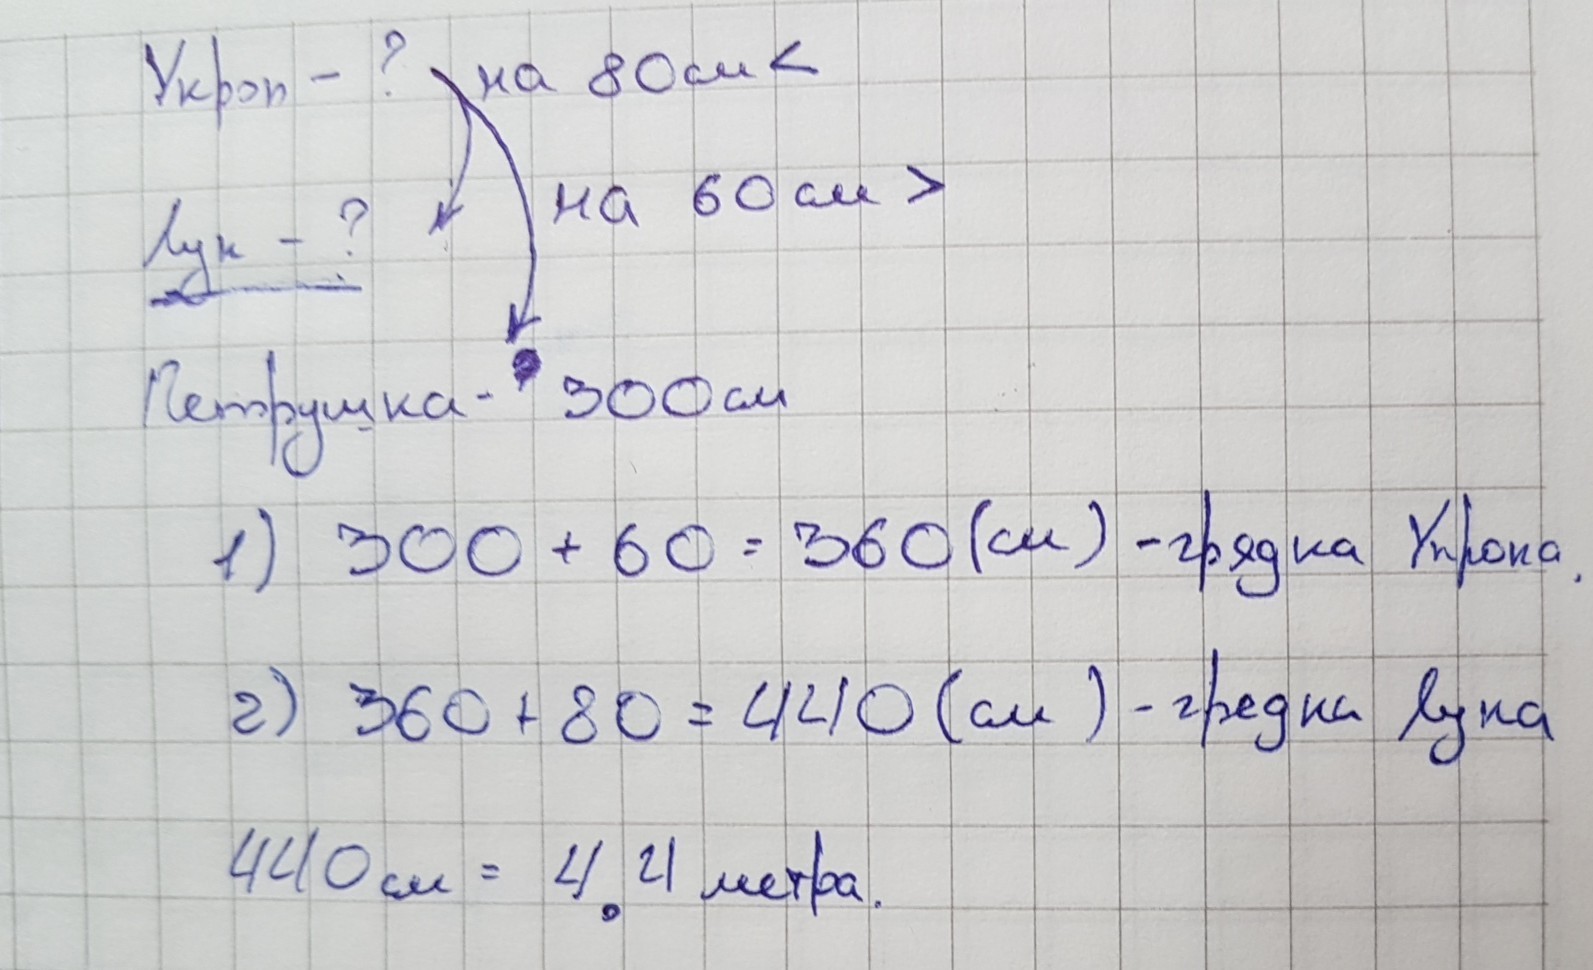 Укроп - ? на 80см <
на 60 см >
Лук - ?
Петрушка - 300см
1) 300 + 60 = 360 (см) - грядка Укропа.
2) 360 + 80 = 440 (см) - гредка Лука
440 см = 4,4 метра.